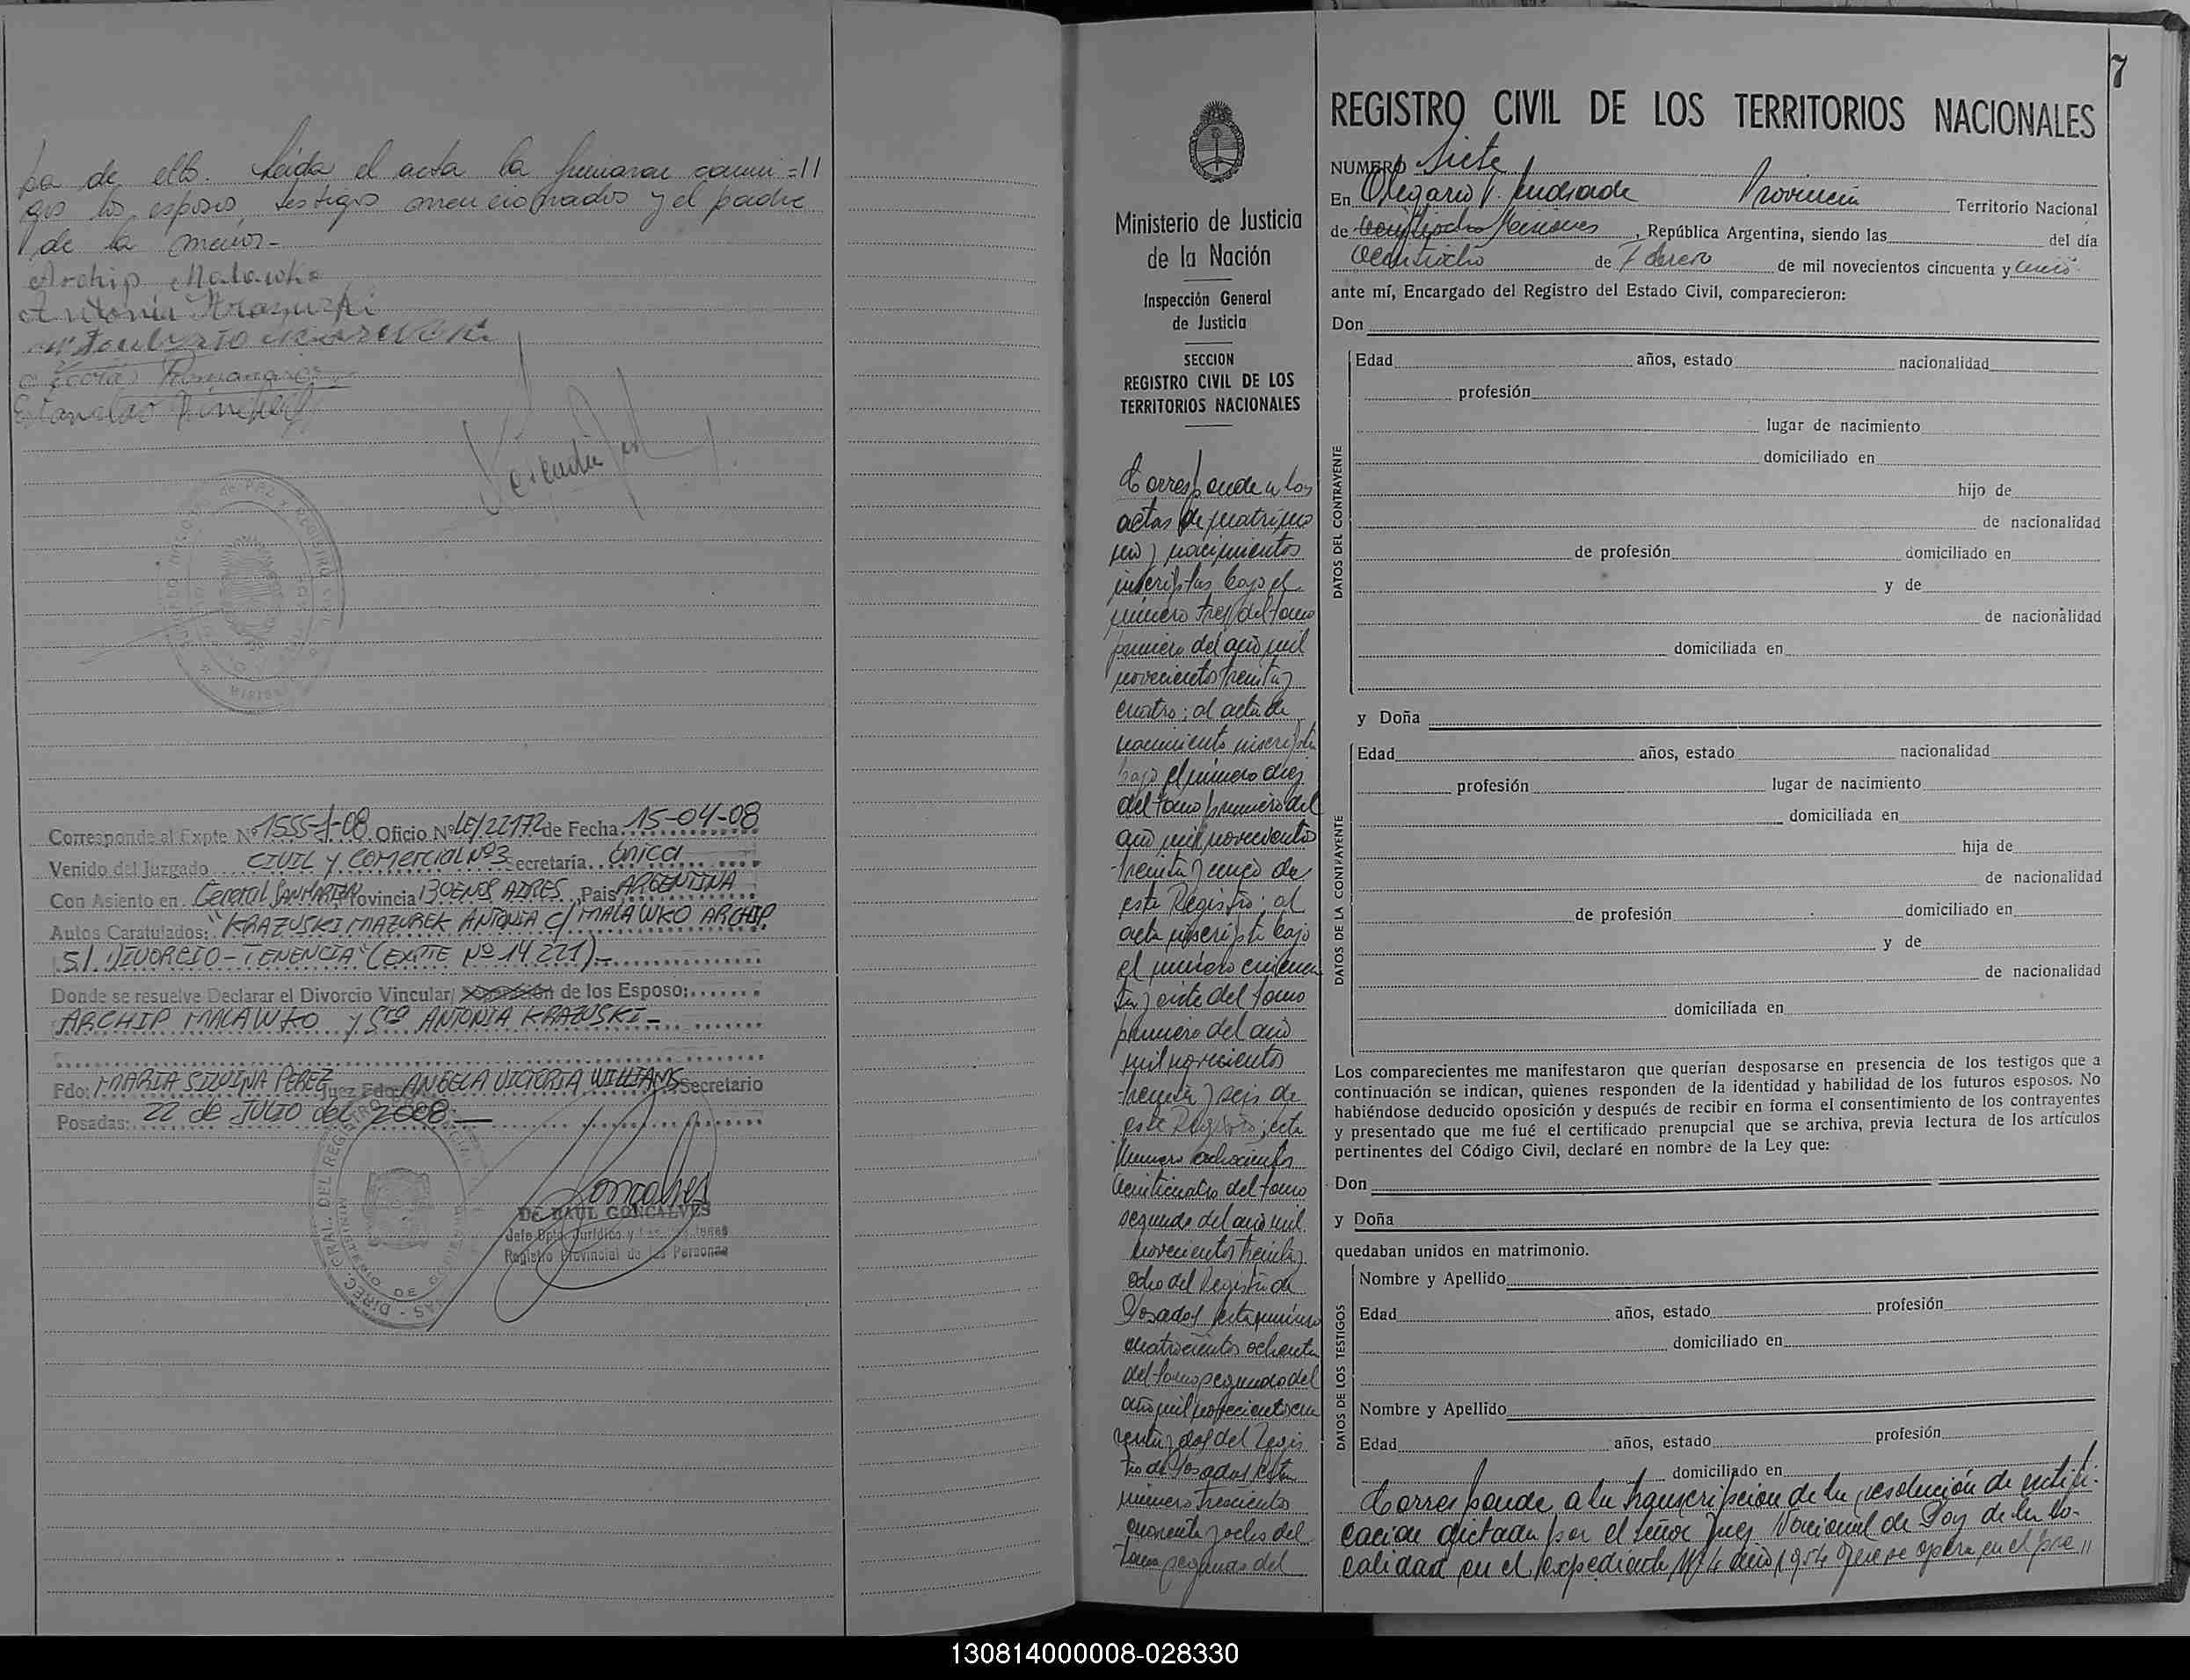 do de ello. Leida el acta la firmaron conmi=//
go los esposos, testigos mencionados y el padre
de la menor-
Archip Malawko
Antonia Krazuski
Estanislao
Corresponde al Expte. Nº 1555-J-08. Oficio Nº LE/22172 de Fecha. 15-04-08
Venido del Juzgado CIVIL Y COMERCIAL Nº3 Secretaría. única
Con Asiento en General SAN MARTIN Provincia BUENOS AIRES, Pais ARGENTINA
Autos Caratulados: "KRAZUSKI MAZUREK ANTONIA C/ MALAWKO ARCHIP
S/. DIVORCIO-TENENCIA" (EXPTE Nº 14.221)-
Donde se resuelve Declarar el Divorcio Vincular/ Separación de los Esposo:
ARCHIP MALAWKO y Sra ANTONIA KRAZUSKI-
Fdo: MARIA SILVINA PEREZ Juez Fdo: ANGELA VICTORIA WILLIAMS Secretario
Posadas: 22 de JULIO del 2008.-
Dr. RAUL GONCALVES
Jefe Dpto. Jurídico y
Registro Provincial de las Personas
7
Ministerio de Justicia
de la Nación
Inspección General
de Justicia
SECCION
REGISTRO CIVIL DE LOS
TERRITORIOS NACIONALES
Corresponde a los
actas de matrimo
nio y nacimientos
inscriptas bajo el
número tres del tomo
primero del año mil
novecientos treinta y
cuatro; al acta de
nacimiento inscripta
bajo el número diez
del tomo primero del
año mil novecientos
treinta y cinco de
este Registro; al
acta inscripta bajo
el número cincuen
ta y siete del tomo
primero del año
mil novecientos
treinta y seis de
este Registro; acta
número ochocientos
veinticuatro del tomo
segundo del año mil
novecientos treinta y
ocho del Registro de
Posadas; acta número
cuatrocientos ochenta
del tomo segundo del
año mil novecientos cua
renta y dos del Regis
tro de Posadas; acta
número trescientos
cuarenta y ocho del
tomo segundo del
REGISTRO CIVIL DE LOS TERRITORIOS NACIONALES
NUMERO Siete
En Olegario V. Andrade Provincia Territorio Nacional
de Misiones, República Argentina, siendo las del día
veintiocho de Febrero de mil novecientos cincuenta y cinco
ante mí, Encargado del Registro del Estado Civil, comparecieron:
Don
DATOS DEL CONTRAYENTE
Edad años, estado nacionalidad
profesión
lugar de nacimiento
domiciliado en
hijo de
de nacionalidad
de profesión domiciliado en
y de
de nacionalidad
domiciliada en
y Doña
DATOS DE LA CONTRAYENTE
Edad años, estado nacionalidad
profesión lugar de nacimiento
domiciliada en
hija de
de nacionalidad
de profesión domiciliado en
y de
de nacionalidad
domiciliada en
Los comparecientes me manifestaron que querían desposarse en presencia de los testigos que a
continuación se indican, quienes responden de la identidad y habilidad de los futuros esposos. No
habiéndose deducido oposición y después de recibir en forma el consentimiento de los contrayentes
y presentado que me fué el certificado prenupcial que se archiva, previa lectura de los artículos
pertinentes del Código Civil, declaré en nombre de la Ley que:
Don
y Doña
quedaban unidos en matrimonio.
DATOS DE LOS TESTIGOS
Nombre y Apellido
Edad años, estado profesión
domiciliado en
Nombre y Apellido
Edad años, estado profesión
domiciliado en
Corresponde a la transcripción de la resolución de rectifi-
cación dictada por el señor Juez Nacional de Paz de la lo-
calidad en el expediente Nº 4 año 1954 que se opera en el pre//
130814000008-028330